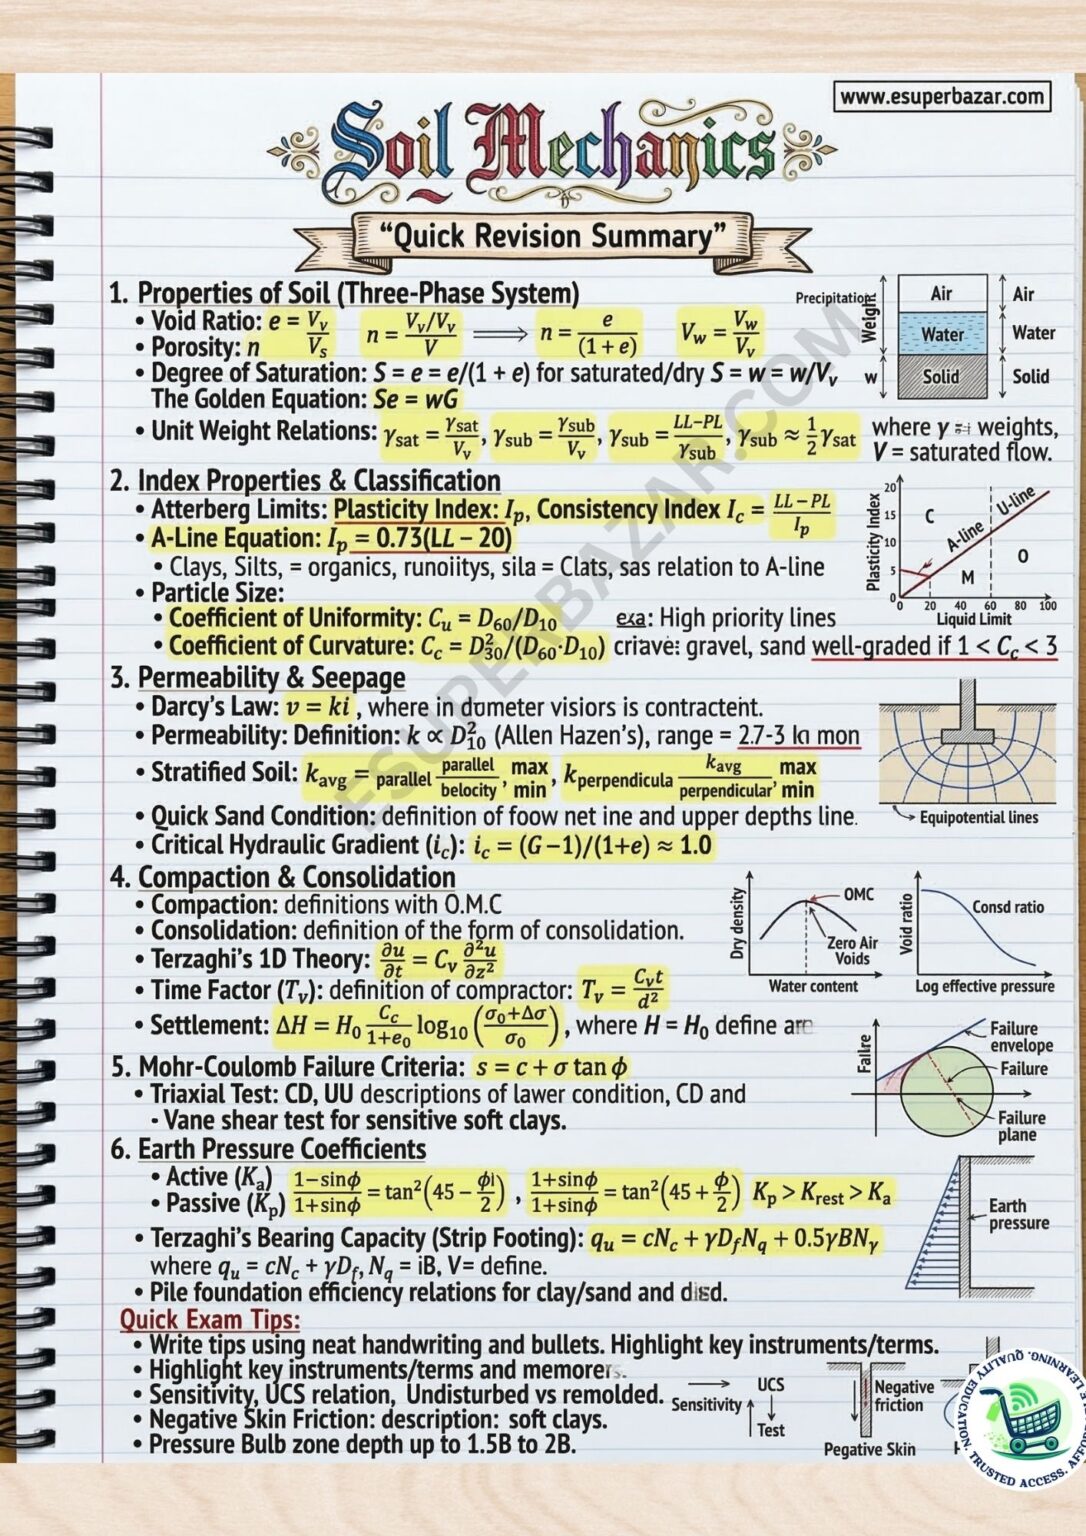 www.esuperbazar.com
Soil Mechanics
“Quick Revision Summary”
1. Properties of Soil (Three-Phase System)
• Void Ratio: e = V_v/V_s   n = (V_v/V_v)/V ⟹ n = e/(1 + e)   V_w = V_w/V_v
• Porosity: n
• Degree of Saturation: S = e = e/(1 + e) for saturated/dry S = w = w/V_v
The Golden Equation: Se = wG
• Unit Weight Relations: γ_sat = γ_sat/V_v, γ_sub = γ_sub/V_v, γ_sub = LL−PL/γ_sub, γ_sub ≈ 1/2 γ_sat   where γ = weights,
V = saturated flow.
Precipitation
Weight
w
Air
Water
Solid
Air
Water
Solid
2. Index Properties & Classification
• Atterberg Limits: Plasticity Index: I_p, Consistency Index I_c = LL − PL/I_p
• A-Line Equation: I_p = 0.73(LL − 20)
• Clays, Silts, = organics, runoiitys, sila = Clats, sas relation to A-line
• Particle Size:
• Coefficient of Uniformity: C_u = D_60/D_10   exa: High priority lines
• Coefficient of Curvature: C_c = D²_30/(D_60·D_10) criave: gravel, sand well-graded if 1 < C_c < 3
Plasticity Index
20
15
10
5
0
C
A-line
U-line
M
O
0 20 40 60 80 100
Liquid Limit
3. Permeability & Seepage
• Darcy's Law: v = ki, where in dumeter visiors is contractent.
• Permeability: Definition: k ∝ D²_10 (Allen Hazen's), range = 2.7-3 kn mon
• Stratified Soil: k_avg = parallel parallel/belocity, max/min, k_perpendicula k_avg/perpendicular, max/min
• Quick Sand Condition: definition of foow net ine and upper depths line.
• Critical Hydraulic Gradient (i_c): i_c = (G−1)/(1+e) ≈ 1.0
Equipotential lines
4. Compaction & Consolidation
• Compaction: definitions with O.M.C
• Consolidation: definition of the form of consolidation.
• Terzaghi's 1D Theory: ∂u/∂t = C_v ∂²u/∂z²
• Time Factor (T_v): definition of compractor: T_v = C_v t/d²
• Settlement: ΔH = H_0 C_c/1+e_0 log_10 (σ_0+Δσ/σ_0), where H = H_0 define are
Dry density
OMC
Zero Air
Voids
Water content
Void ratio
Consd ratio
Log effective pressure
5. Mohr-Coulomb Failure Criteria: s = c + σ tan ϕ
• Triaxial Test: CD, UU descriptions of lawer condition, CD and
- Vane shear test for sensitive soft clays.
Failre
Failure
envelope
Failure
Failure
plane
6. Earth Pressure Coefficients
• Active (K_a) 1−sinϕ/1+sinϕ = tan²(45 − ϕ/2), 1+sinϕ/1+sinϕ = tan²(45 + ϕ/2) K_p > K_rest > K_a
• Passive (K_p)
• Terzaghi's Bearing Capacity (Strip Footing): q_u = cN_c + γD_f N_q + 0.5γBN_γ
where q_u = cN_c + γD_f, N_q = iB, V= define.
• Pile foundation efficiency relations for clay/sand and
Earth
pressure
Quick Exam Tips:
• Write tips using neat handwriting and bullets. Highlight key instruments/terms.
• Highlight key instruments/terms and memorers.
• Sensitivity, UCS relation, Undisturbed vs remolded.
• Negative Skin Friction: description: soft clays.
• Pressure Bulb zone depth up to 1.5B to 2B.
Sensitivity
UCS
Test
Negative
friction
Pegative Skin
ESUPERBAZAR.COM
QUALITY EDUCATION. TRUSTED ACCESS.
LEARNING.